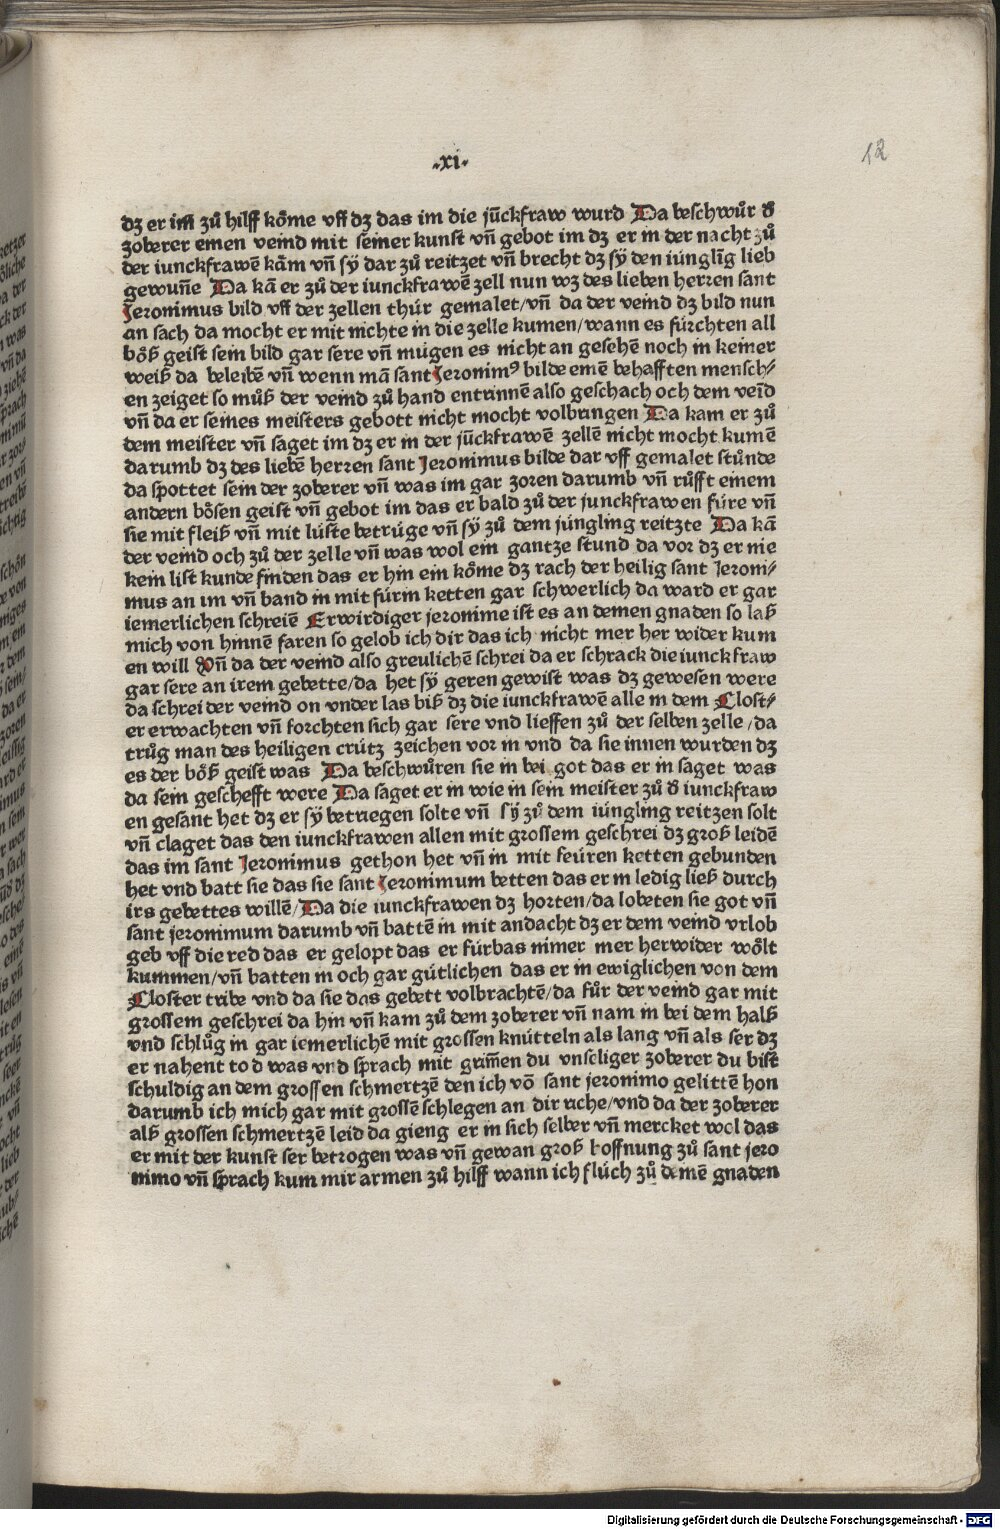 ·xi·
12
dʒ er im zů hilff kőme vff dʒ das im die jūckfraw wurd Da beschwůr d̓
zoberer einen veind mit seiner kunst vñ gebot im dʒ er in der nacht zů
der iunckfrawē kām vñ sÿ dar zů reitzet vñ brecht dʒ sÿ den iünglīg lieb
gewuñe Da kā er zů der iunckfrawē zell nun wʒ des lieben herren sant
Jeronimus bild vff der zellen thür gemalet/vñ da der veind dʒ bild nun
an sach da mocht er mit nichte in die zelle kumen/wann es fürchten all
bőß geist sein bild gar sere vñ mügen es nicht an gesehē noch in keiner
weiß da beleibē vñ wenn mā sant Jeronimꝰ bilde emē behafften mensch⸗
en zeiget so můß der veind zů hand entrinnē also geschach och dem veīd
vñ da er seines meisters gebott nicht mocht volbringen Da kam er zů
dem meister vñ saget im dʒ er in der jūckfrawē zellē nicht mocht kumē
darumb dʒ des liebē herren sant Jeronimus bilde dar vff gemalet stůnde
da spottet sein der zoberer vñ was im gar zoren darumb vñ růfft einem
andern bősen geist vñ gebot im das er bald zů der junckfrawen füre vñ
sie mit fleiß vñ mit lüste betrüge vñ sÿ zů dem jüngling reitzte Da kā
der veind och zů der zelle vñ was wol ein gantze stund da vor dʒ er nie
kein list kunde finden das er hin ein kőme dʒ rach der heilig sant Jeroni⸗
mus an im vñ band in mit fürin ketten gar schwerlich da ward er gar
iemerlichen schreiē Erwirdiger jeronime ist es an deinen gnaden so laß
mich von hinnē faren so gelob ich dir das ich nicht mer her wider kum
en will Vñ da der veind also greulichē schrei da er schrack die iunckfraw
gar sere an irem gebette/da het sÿ geren gewist was dʒ gewesen were
da schrei der veind on vnder las biß dʒ die iunckfrawē alle in dem Clost⸗
er erwachten vñ forchten sich gar sere vnd lieffen zů der selben zelle/da
trůg man des heiligen crütz zeichen vor in vnd da sie innen wurden dʒ
es der bőß geist was Da beschwůren sie in bei got das er in saget was
da sein geschefft were Da saget er in wie in sein meister zů d̓ iunckfraw
en gesant het dʒ er sÿ betriegen solte vñ sÿ zů dem iüngling reitzen solt
vñ claget das den iunckfrawen allen mit grossem geschrei dʒ groß leidē
das im sant Jeronimus gethon het vñ in mit feüren ketten gebunden
het vnd batt sie das sie sant Jeronimum betten das er in ledig ließ durch
irs gebettes willē/Da die iunckfrawen dʒ horten/da lobeten sie got vñ
sant jeronimum darumb vñ battē in mit andacht dʒ er dem veind vrlob
geb vff die red das er gelopt das er fürbas nimer mer herwider wőlt
kummen/vñ batten in och gar gütlichen das er in ewiglichen von dem
Closter tribe vnd da sie das gebett volbrachtē/da fůr der veind gar mit
grossem geschrei da hin vñ kam zů dem zoberer vñ nam in bei dem halß
vnd schlůg in gar iemerlichē mit grossen knütteln als lang vñ als ser dʒ
er nahent tod was vnd sprach mit grim̄en du vnseliger zoberer du bist
schuldig an dem grossen schmertzē den ich vō sant jeronimo gelittē hon
darumb ich mich gar mit grossē schlegen an dir riche/vnd da der zoberer
alß grossen schmertzē leid da gieng er in sich selber vñ mercket wol das
er mit der kunst ser betrogen was vñ gewan groß hoffnung zů sant jero
nimo vñ sprach kum mir armen zů hilff wann ich flüch zů deinē gnaden
Digitalisierung gefördert durch die Deutsche Forschungsgemeinschaft - DFG